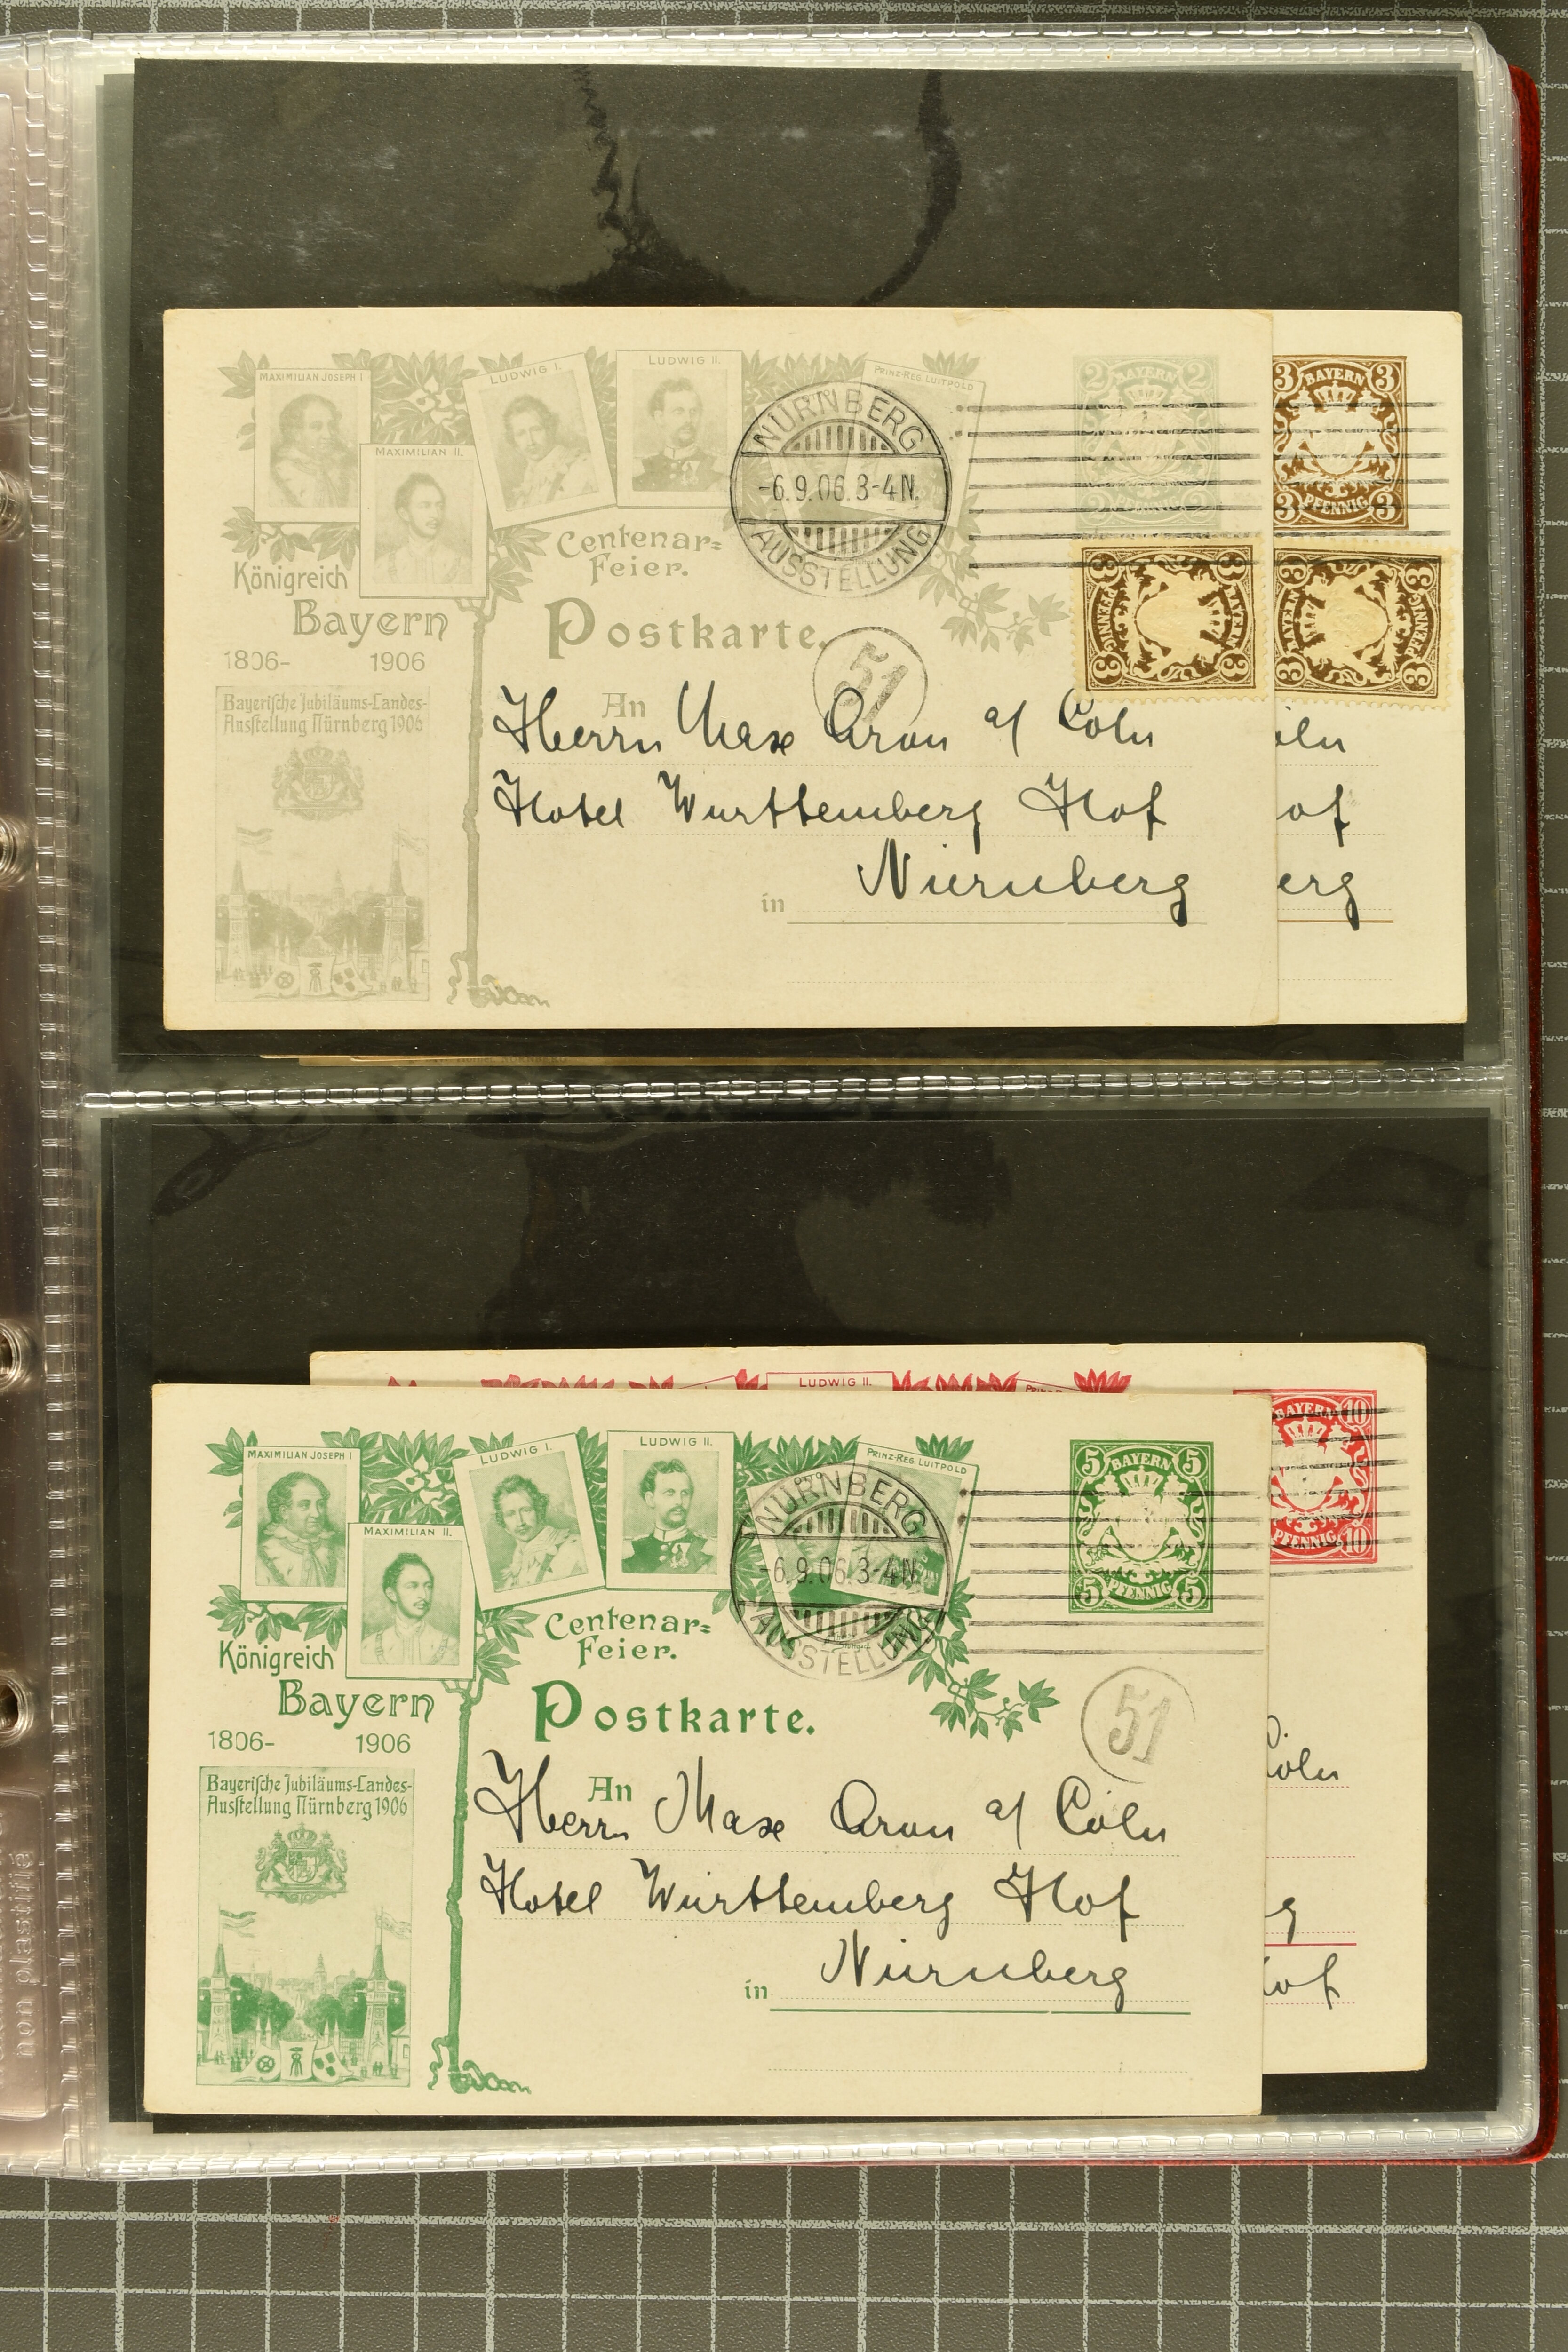 MAXIMILIAN JOSEPH I
MAXIMILIAN II.
LUDWIG I.
LUDWIG II.
PRINZ-REG. LUITPOLD
Centenar=
Feier.
Königreich
Bayern
1806- 1906
Postkarte.
Bayerische Jubiläums-Landes-
Ausstellung Nürnberg 1906
NÜRNBERG
-6.9.06.3-4N.
AUSSTELLUNG
51
2 BAYERN 2
2 PFENNIG 2
3 BAYERN 3
3 PFENNIG 3
3 BAYERN 3
3 PFENNIG 3
3 BAYERN 3
3 PFENNIG 3
An
Herrn Max Aron a/ Cöln
Hotel Württemberg Hof
in Nürnberg
öln
of
erg
LUDWIG II.
10
BAYERN 10
PFENNIG 10
MAXIMILIAN JOSEPH I
MAXIMILIAN II.
LUDWIG I.
LUDWIG II.
PRINZ-REG. LUITPOLD
Centenar=
Feier.
Königreich
Bayern
1806- 1906
Postkarte.
Bayerische Jubiläums-Landes-
Ausstellung Nürnberg 1906
NÜRNBERG
-6.9.06.3-4N.
AUSSTELLUNG
5 BAYERN 5
5 PFENNIG 5
51
An
Herrn Max Aron a/ Cöln
Hotel Württemberg Hof
in Nürnberg
Cöln
g
Hof
non plastifié